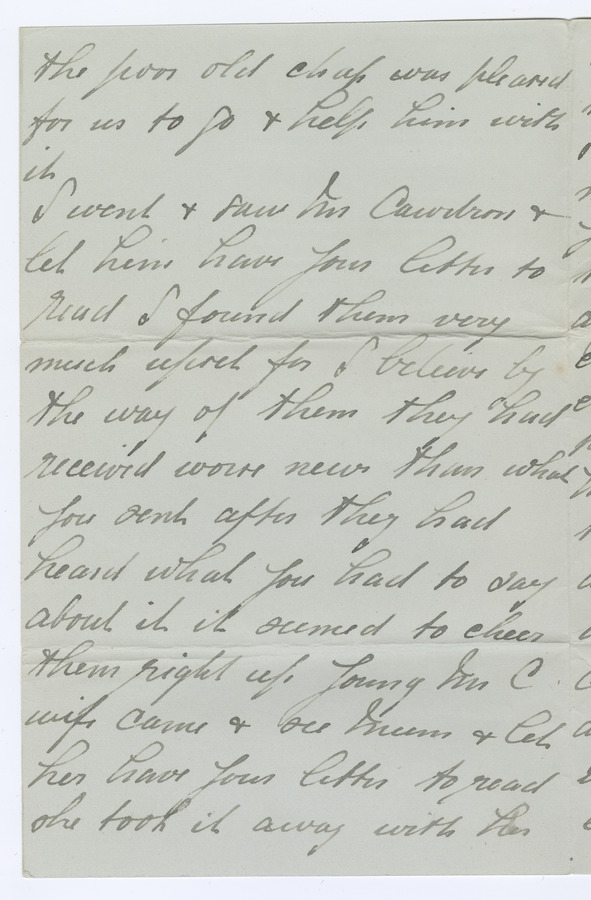 the poor old chap was pleased
for us to go & help him with
it
I went & saw Mr Cawdron &
let him have your letter to
read I found them very
much upset for I believe by
the way of them they had
received worse news than what
you sent after they had
heard what you had to say
about it it seemed to cheer
them right up young Mr C
wife came & see Mum & let
her have your letter to read
she took it away with her